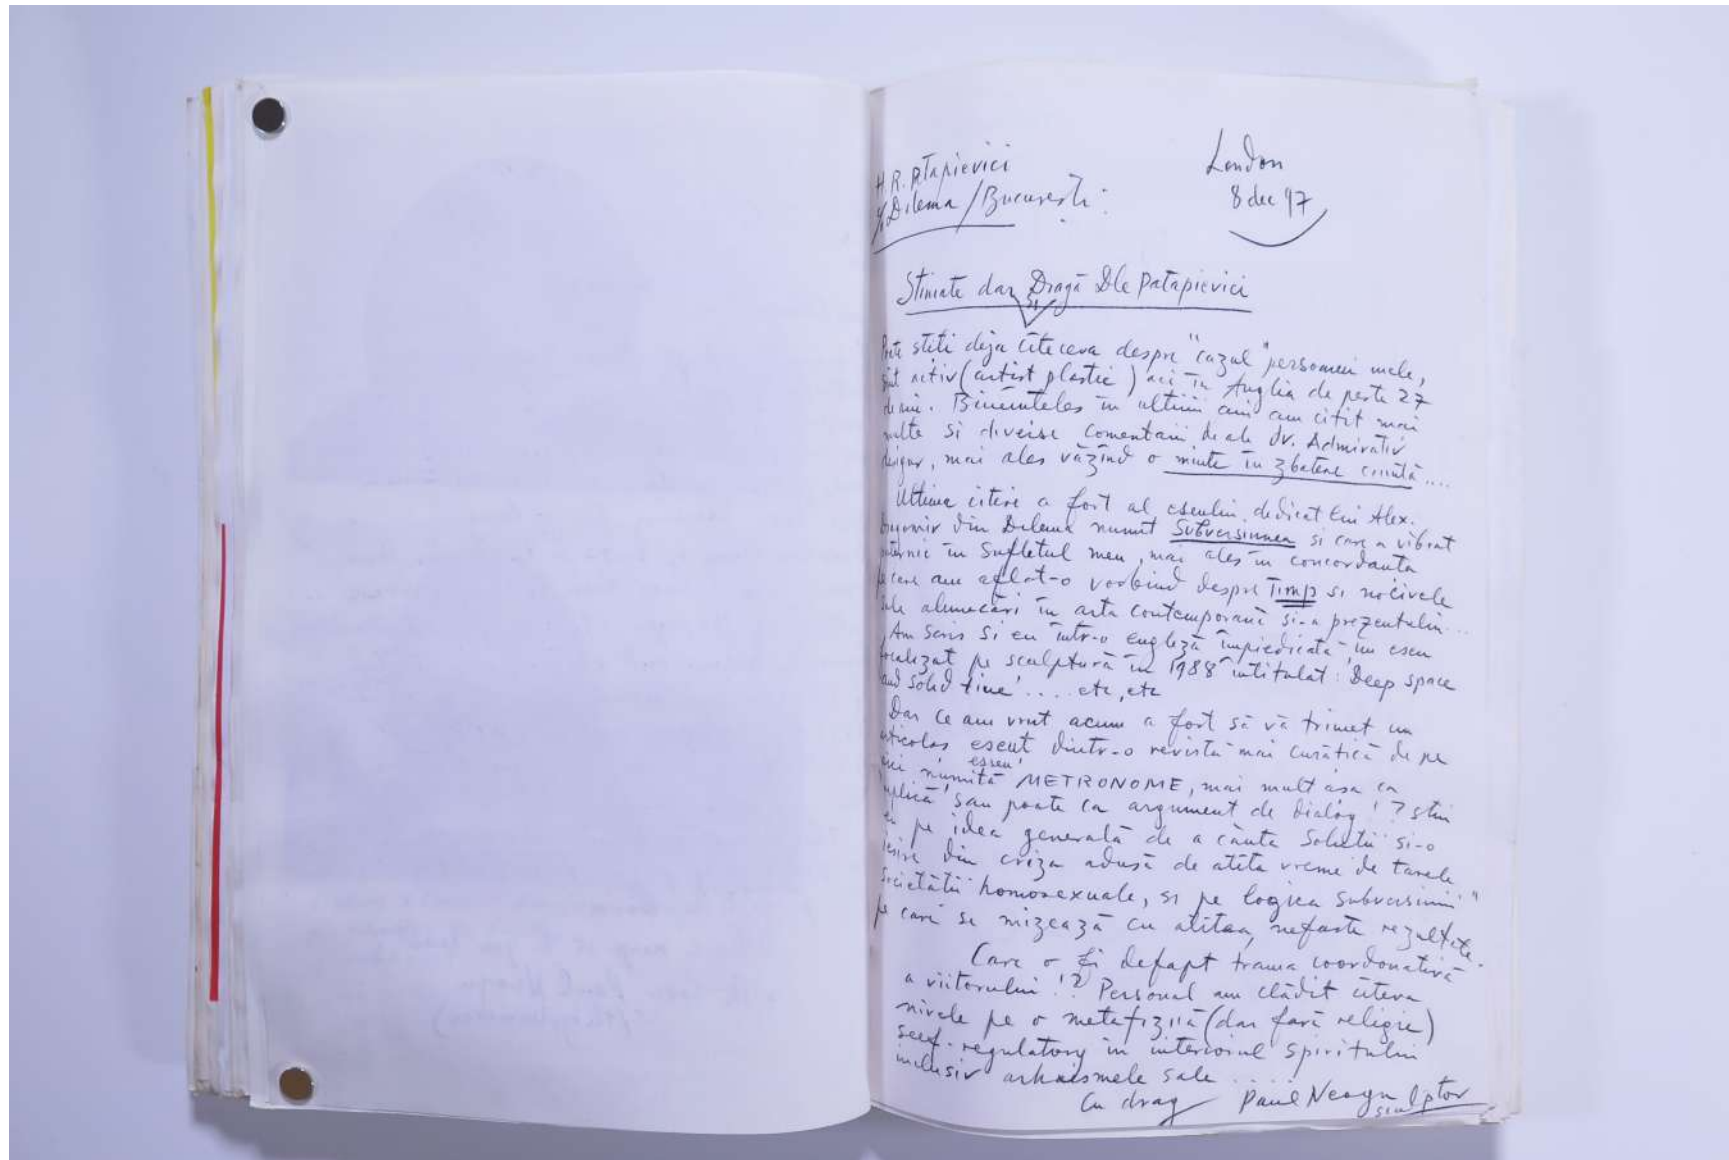 H.R. Patapievici
℅ Dilema / București
London
8 dec 97
Stimate dar și Dragă Dle Patapievici
Poate stiti deja cîteceva despre "cazul" persoanei mele,
sînt activ (artist plastic) aci în Anglia de peste 27
de ani. Bineînteles în ultimii ani am citit mai
multe si diverse comentarii de ale dv. Admirativ
desigur, mai ales văzînd o minte în zbatere cinstită ....
Ultima citire a fost al eseului dedicat lui Alex.
Dragomir din Dilema numit Subversiunea si care a vibrat
puternic în sufletul meu, mai ales în concordanta
pe care am aflat-o vorbind despre Timp si nocivele
sale alunecări în arta contemporană si-a prezentului...
Am scris si eu într-o engleză împiedicată un eseu
focalizat pe sculptură în 1988 intitulat: Deep space
and solid time'.... etc, etc
Dar ce am vrut acum a fost să vă trimet un
articolas eseut dintr-o revistă mai curătică de pe
eseu'
aici numită METRONOME, mai mult asa ca
replică sau poate ca argument de dialog!? stiu
eu pe idea generală de a căuta solutii si-o
iesire din criza adusă de atîta vreme de tarele
societătii homosexuale, si pe logica subversiunii"
pe care se mizează cu atîtea nefaste rezultate.
Care o fi defapt trama coordonativă
a viitorului!? Personal am clădit cîteva
nivele pe o metafizică (dar fară religie)
self-regulatory în interiorul spiritului
inclusiv arhaismele sale ....
Cu drag Paul Neagu
sculptor